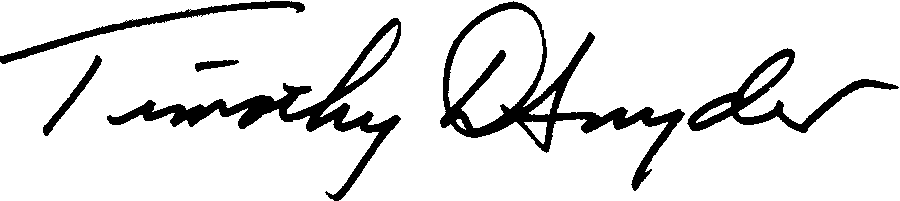 Timothy D Snyder